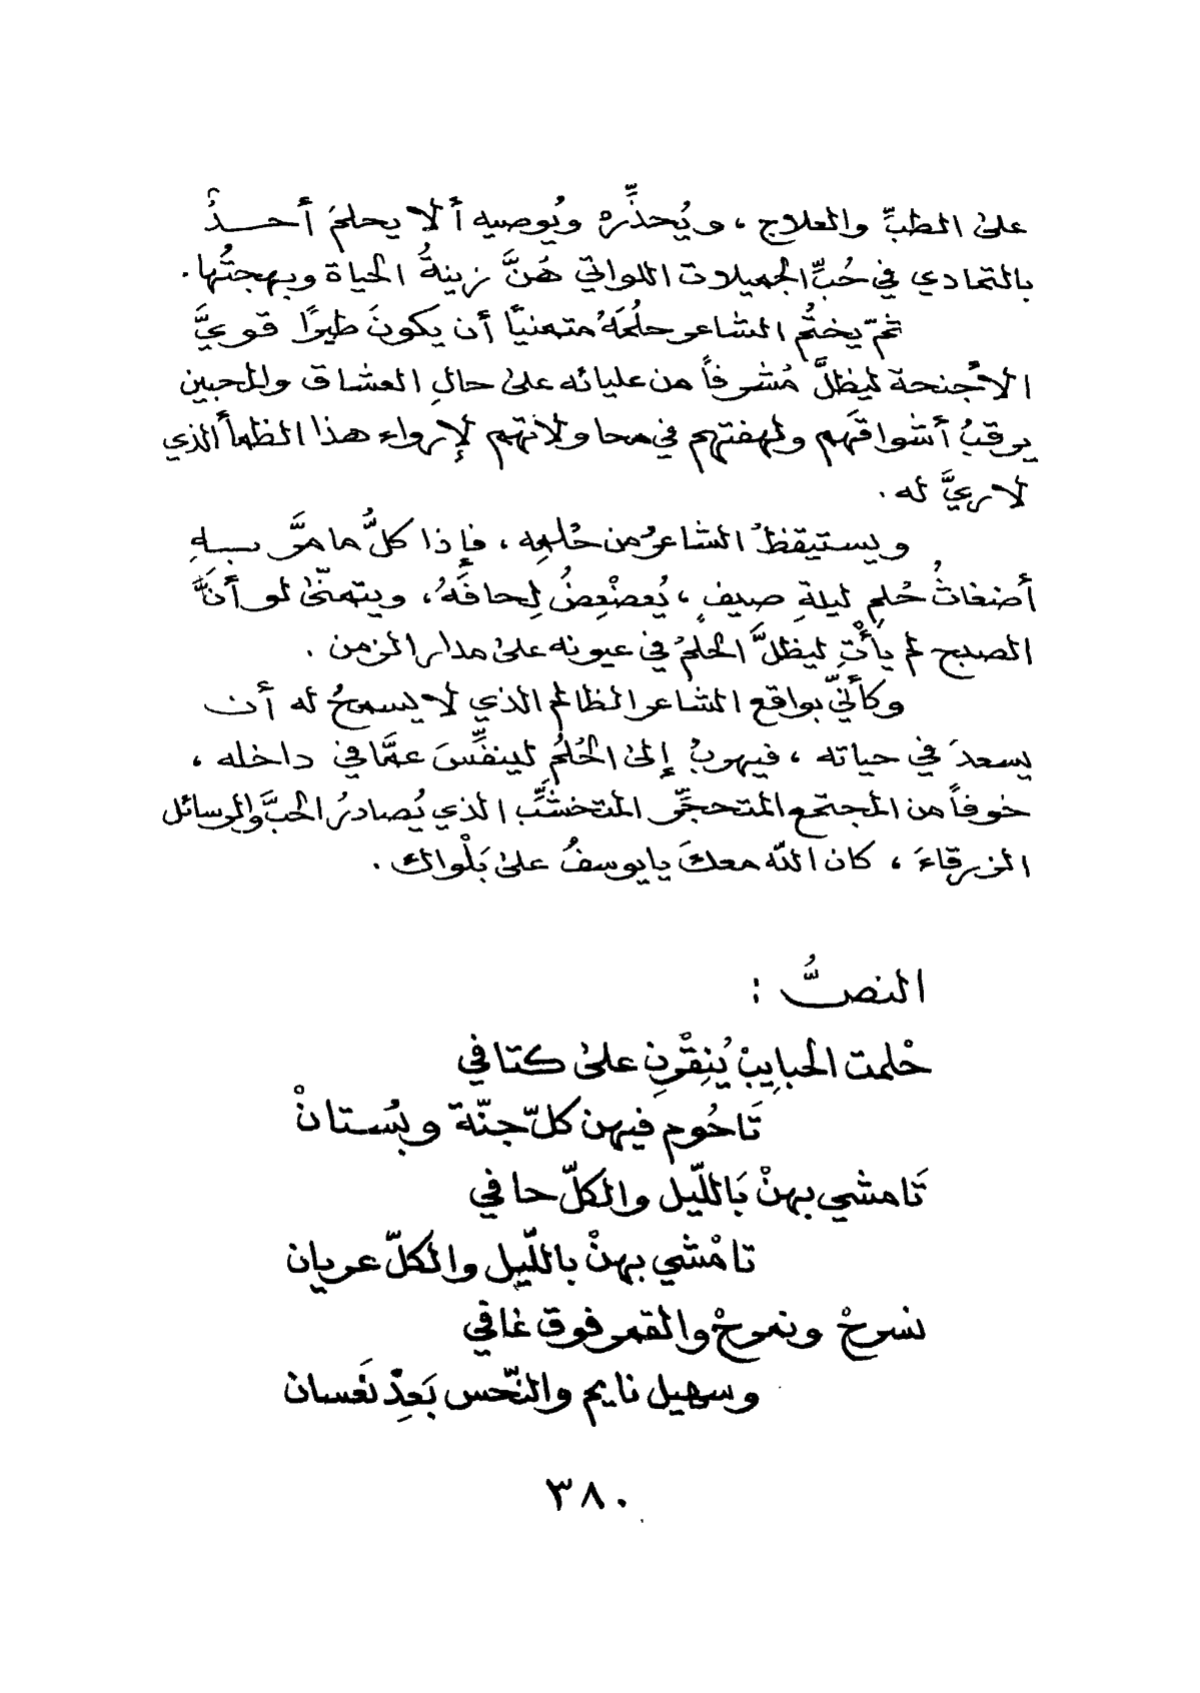 على الطبِّ والعلاج ، ويُحذِّره ويُوصيه ألا يحلمَ أحــدٌ
بالتمادي في حُبِّ الجميلات اللواتي هُنَّ زينةُ الحياة وبهجتُها .
ثمّ يختمُ الشاعر حلُمَهُ متمنياً أن يكونَ طيرًا قويَّ
الأجنحة ليظلَّ مُشرفاً من عليائه على حالِ العشاق والمحبين
يرقبُ أشواقَهم ولهفتهم في محاولاتهم لإرواء هذا الظمأ الذي
لا ريَّ له .
ويستيقظُ الشاعرُ من حُلمِه ، فإذا كلُّ ما مرَّ بــهِ
أضغاثُ حُلمِ ليلةِ صيفٍ ، يُعضْعِضُ لِحافَهُ ، ويتمنّى لو أنَّ
الصبح لم يأْتِ ليظلَّ الحلمُ في عيونه على مدار الزمن .
وكأنّي بواقع الشاعر الظالم الذي لا يسمحُ له أن
يسعدَ في حياته ، فيهربُ إلى الحُلمُ لينفِّسَ عمَّا في داخله ،
خوفاً من المجتمع المتحجِّر المتخشِّب الذي يُصادرُ الحبَّ والرسائل
الزرقاءَ ، كان اللّه معكَ يا يوسفُ على بَلْواك .
النصُّ :
حْلمت الحبايِبْ يُنِقْرِن على كتافي
تَاحُوم فيهن كلّ جنّة وبُستانْ
تَامشي بهنْ بَاللّيل والكلّ حافي
تامْشي بهنْ باللّيل والكلّ عريان
نسرحْ ونمرحْ والقمر فوق غافي
وسهيل نايم والنّحس بَعِدْ نَعسان
٣٨٠